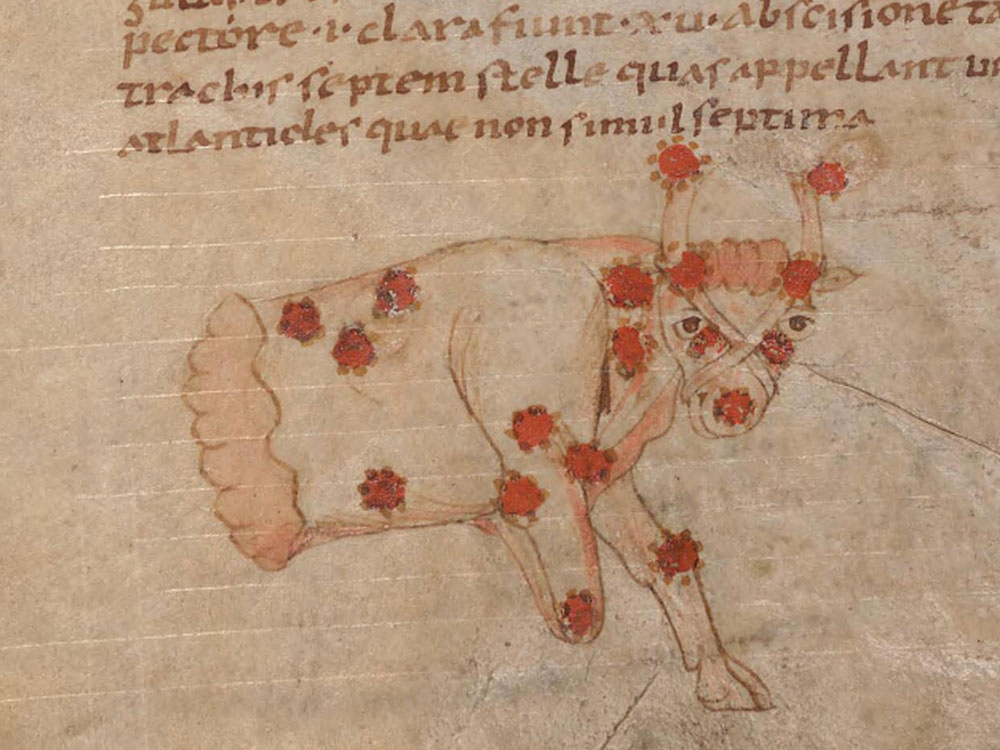 pectore · i · clara fiunt · xu · abscisione ta
trachis septem stelle quas appellant
atlanticles quae non simul septima